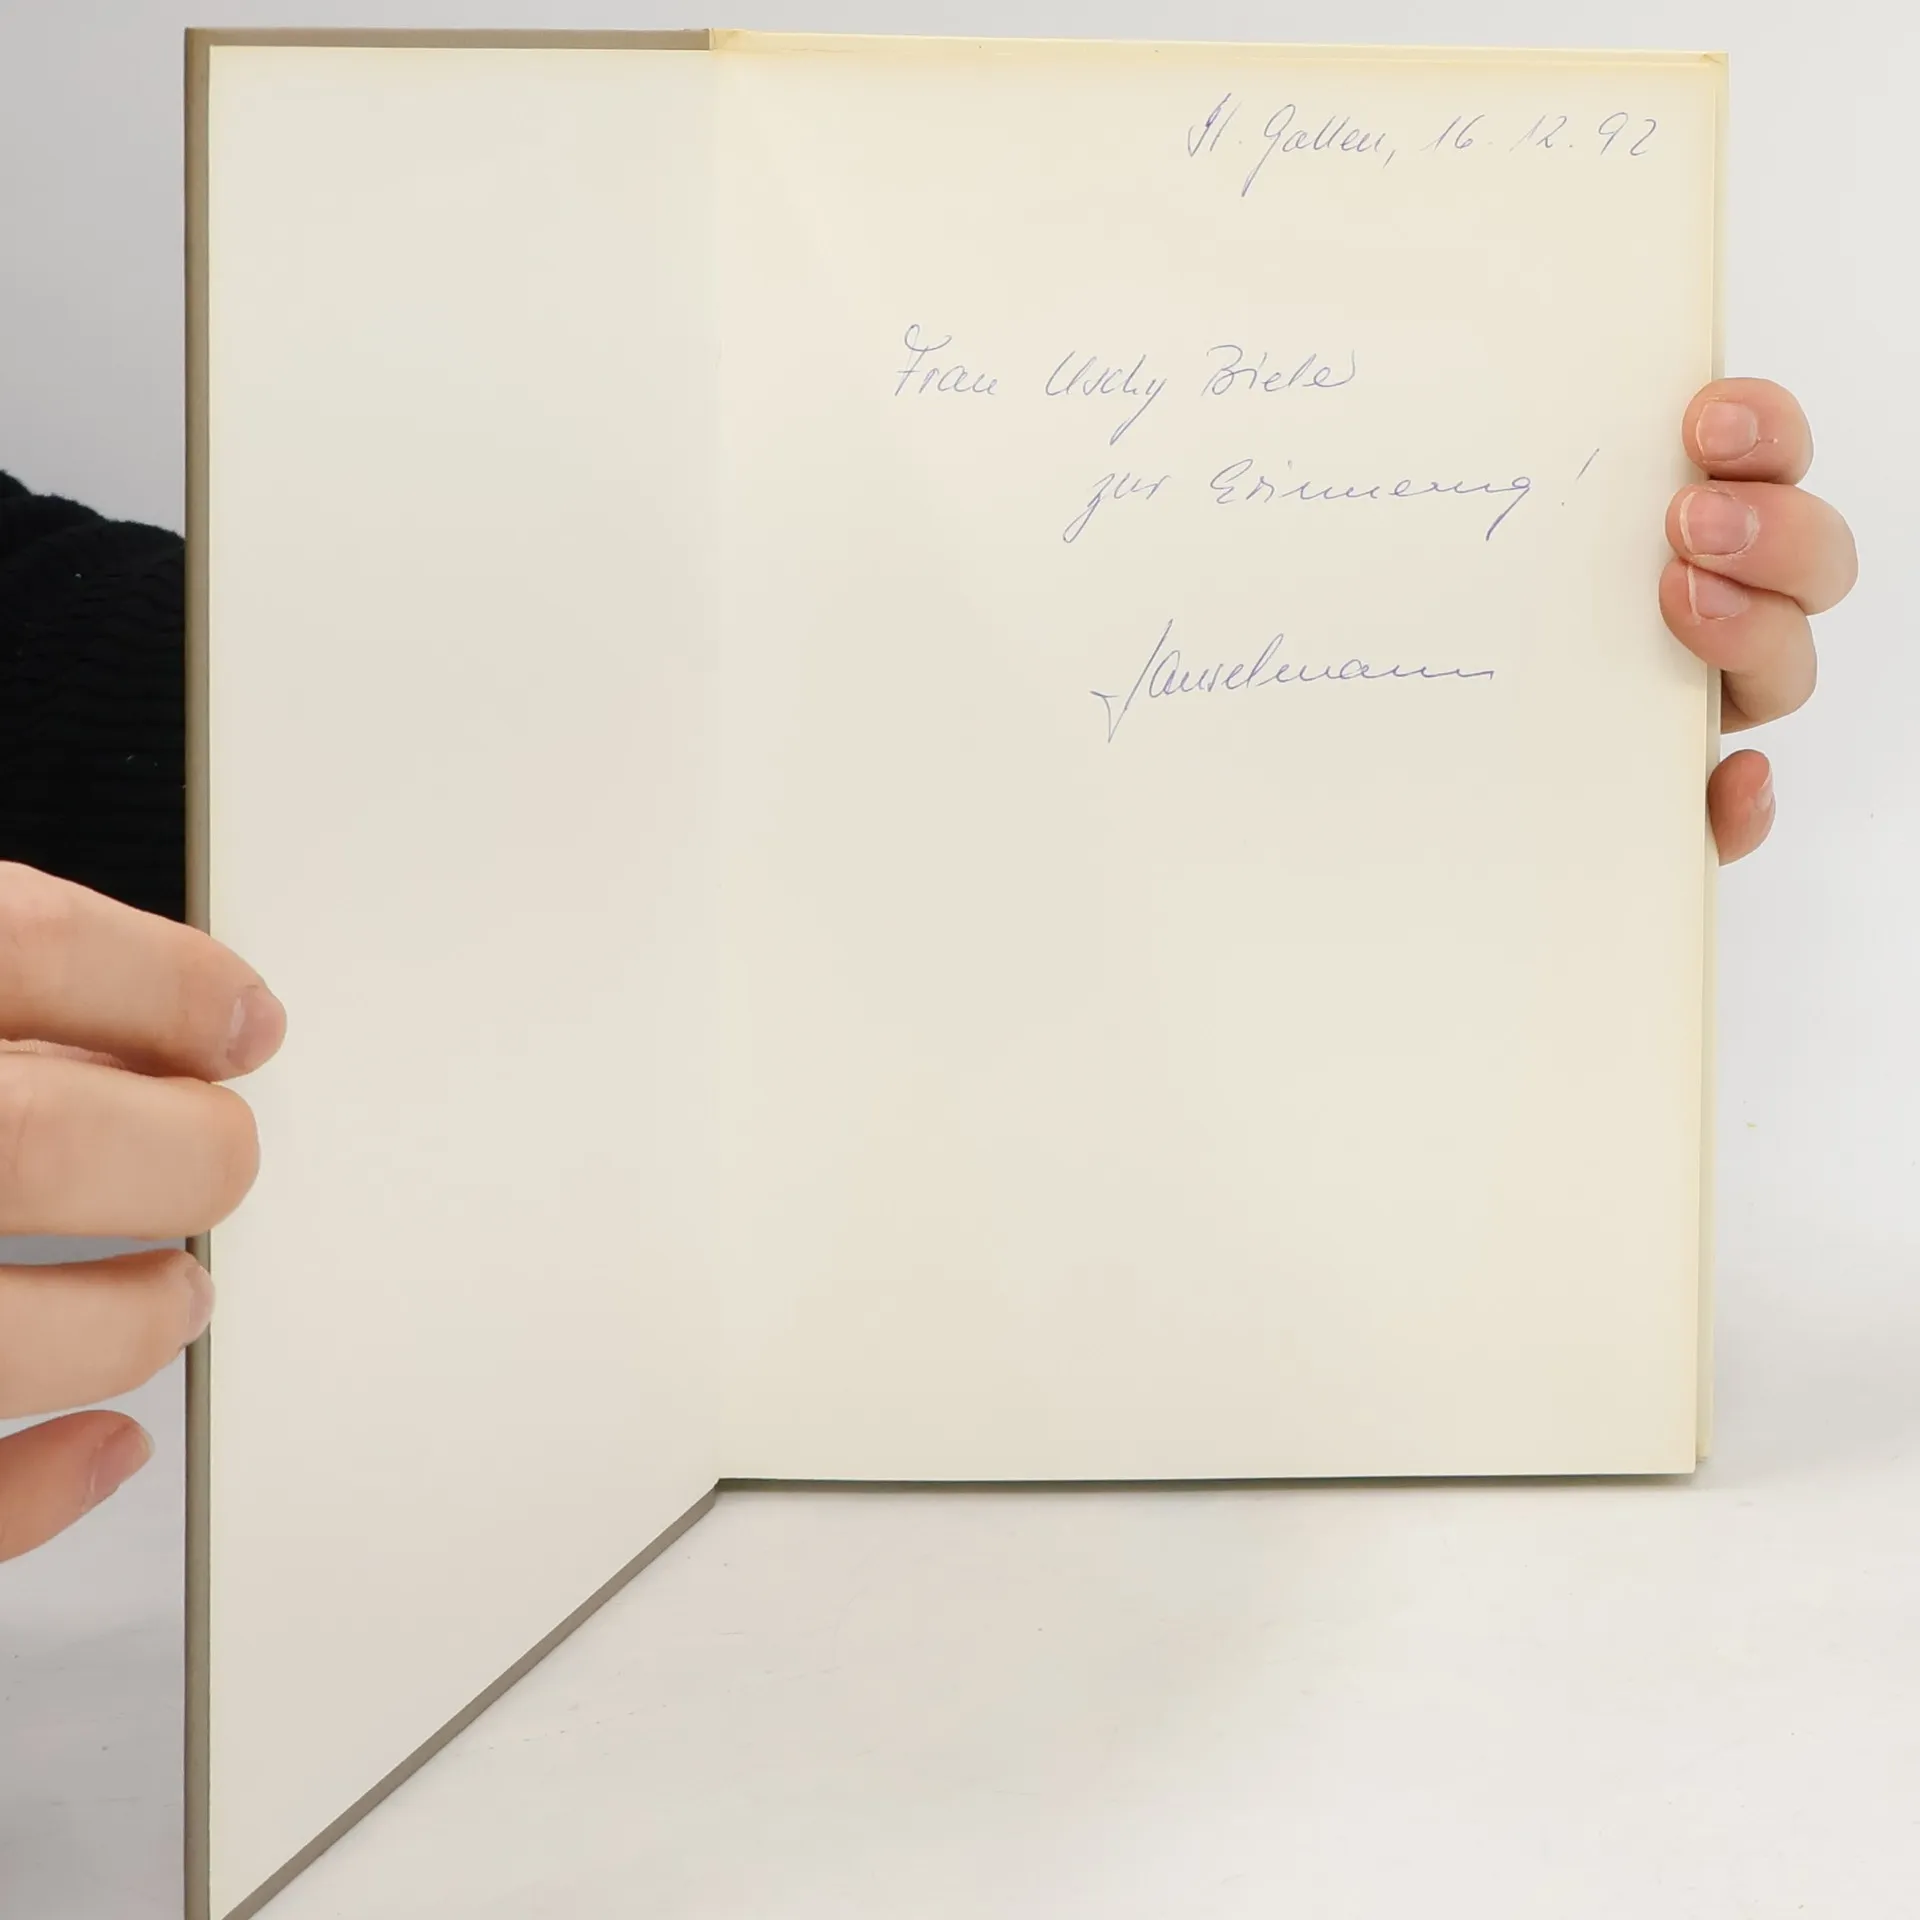 St. Gallen, 16. 12. 92
Frau Uschy Biele
zur Erinnerung!
Hanselmann